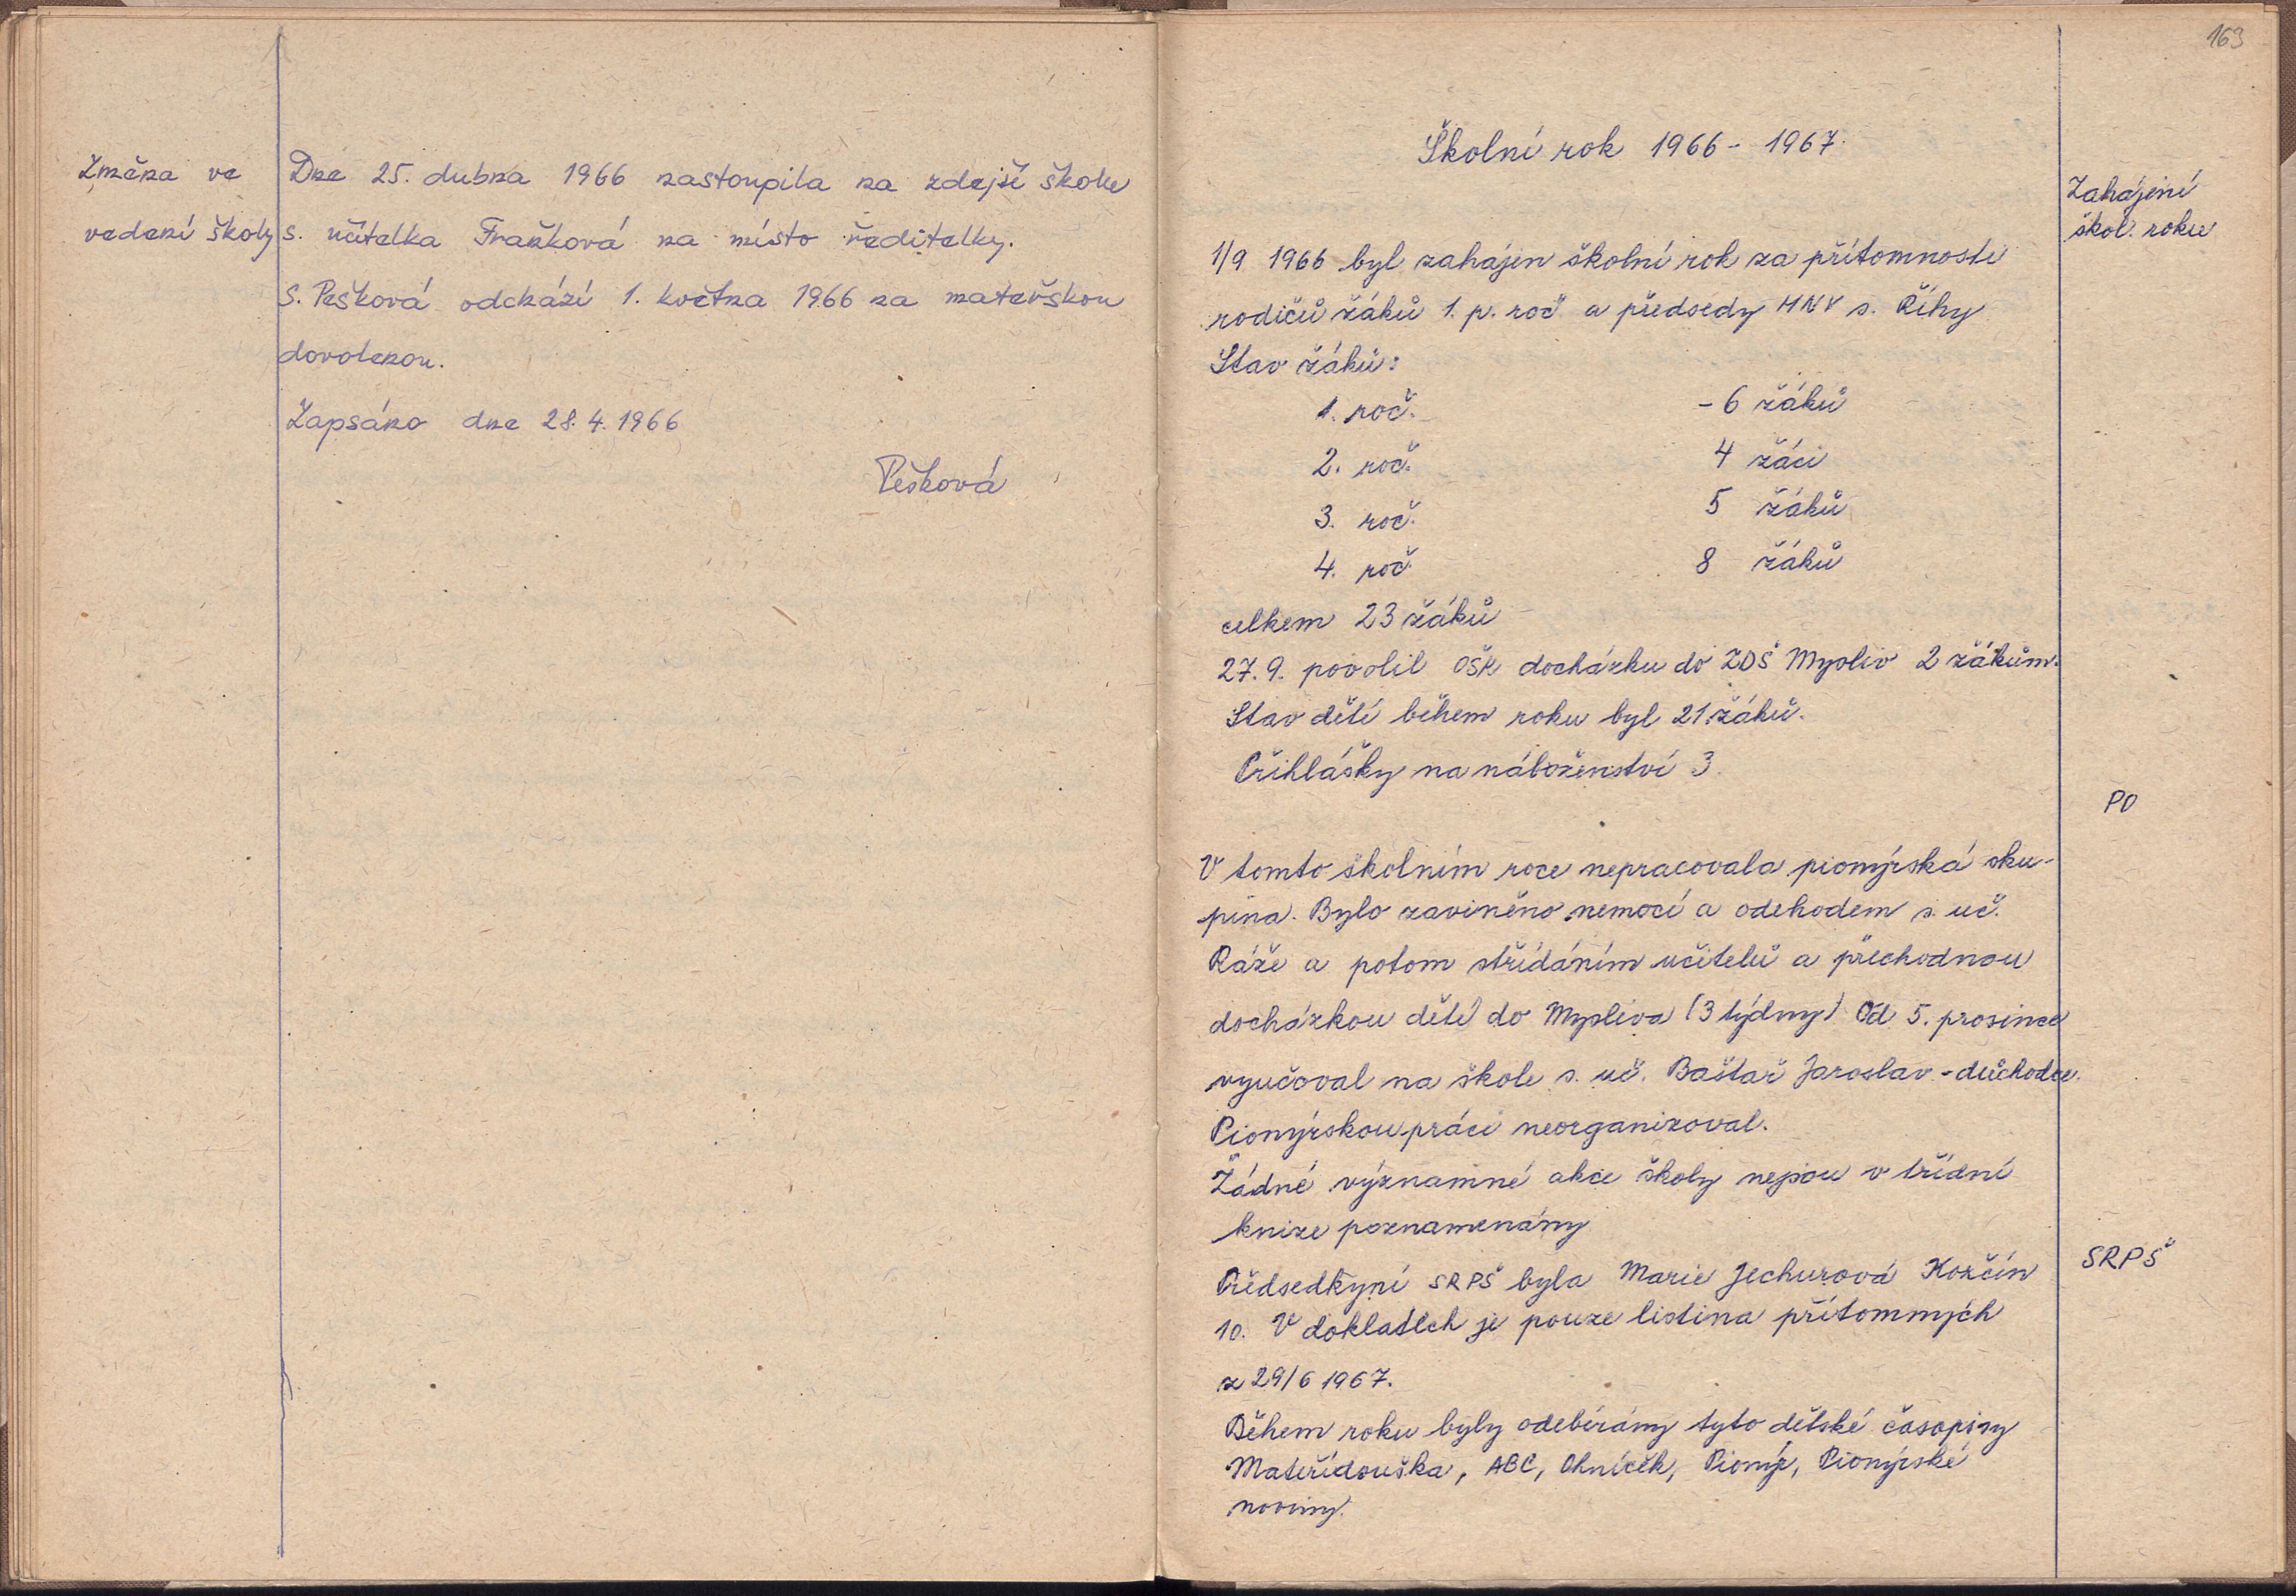 Změna ve
vedení školy
Dne 25. dubna 1966 nastoupila na zdejší škole
s. učitelka Fraňková na místo ředitelky.
S. Pešková odchází 1. května 1966 na mateřskou
dovolenou.
Zapsáno dne 28. 4. 1966
Pešková
163
Školní rok 1966 - 1967.
Zahájení
škol. roku
1/9 1966 byl zahájen školní rok za přítomnosti
rodičů žáků 1. p. roč a předsedy MNV s. Říhy
Stav žáků:
1. roč. - 6 žáků
2. roč. 4 žáci
3. roč. 5 žáků
4. roč. 8 žáků
celkem 23 žáků
27. 9. povolil OŠK docházku do ZDŠ Mysliv 2 žákům.
Stav dětí během roku byl 21 žáků.
Přihlášky na náboženství 3.
PO
V tomto školním roce nepracovala pionýrská sku-
pina. Bylo zaviněno nemocí a odchodem s. uč.
Ráže a potom střídáním učitelů a přechodnou
docházkou dětí do Mysliva (3 týdny) Od 5. prosince
vyučoval na škole s. uč. Baštař Jaroslav - důchodce.
Pionýrskou práci neorganizoval.
Žádné významné akce školy nejsou v třídní
knize poznamenány
SRPŠ
Předsedkyní SRPŠ byla Marie Jechurová Kozčín
10. V dokladech je pouze listina přítomných
z 29/6 1967.
Během roku byly odebírány tyto dětské časopisy
Mateřídouška, ABC, Ohníček, Pionýr, Pionýrské
noviny.